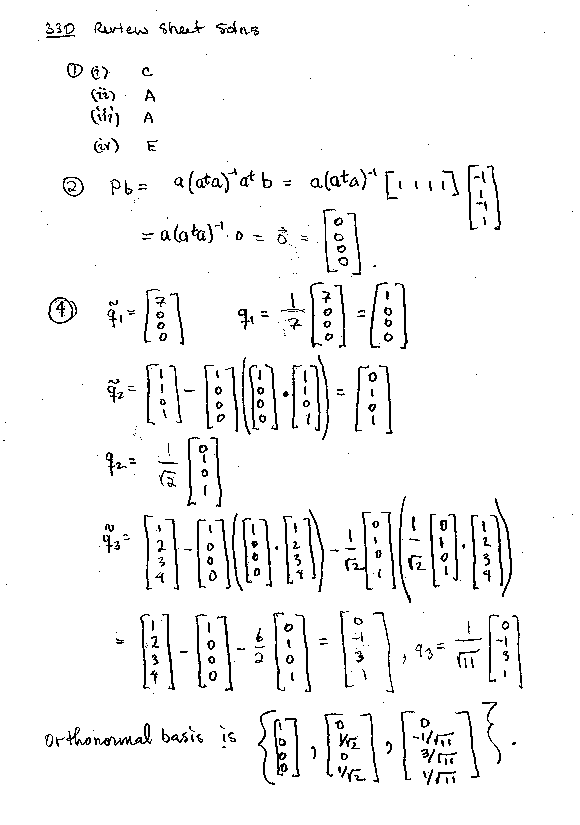 33D Review Sheet Solns
① (i) C
(ii) A
(iii) A
(iv) E
② Pb = a(aᵗa)⁻¹aᵗb = a(aᵗa)⁻¹ [1 1 1 1] [-1 1 -1 1]
= a(aᵗa)⁻¹·0 = 0⃗ = [0 0 0 0].
④ q̃₁ = [7 0 0 0] q₁ = 1/7 [7 0 0 0] = [1 0 0 0]
q̃₂ = [1 1 0 1] - [1 0 0 0] ([1 0 0 0] · [1 1 0 1]) = [0 1 0 1]
q₂ = 1/√2 [0 1 0 1]
q̃₃ = [1 2 3 4] - [1 0 0 0] ([1 0 0 0] · [1 2 3 4]) - 1/√2 [0 1 0 1] (1/√2 [0 1 0 1] · [1 2 3 4])
= [1 2 3 4] - [1 0 0 0] - 6/2 [0 1 0 1] = [0 -1 3 1], q₃ = 1/√11 [0 -1 3 1]
Orthonormal basis is { [1 0 0 0], [0 1/√2 0 1/√2], [0 -1/√11 3/√11 1/√11] }.